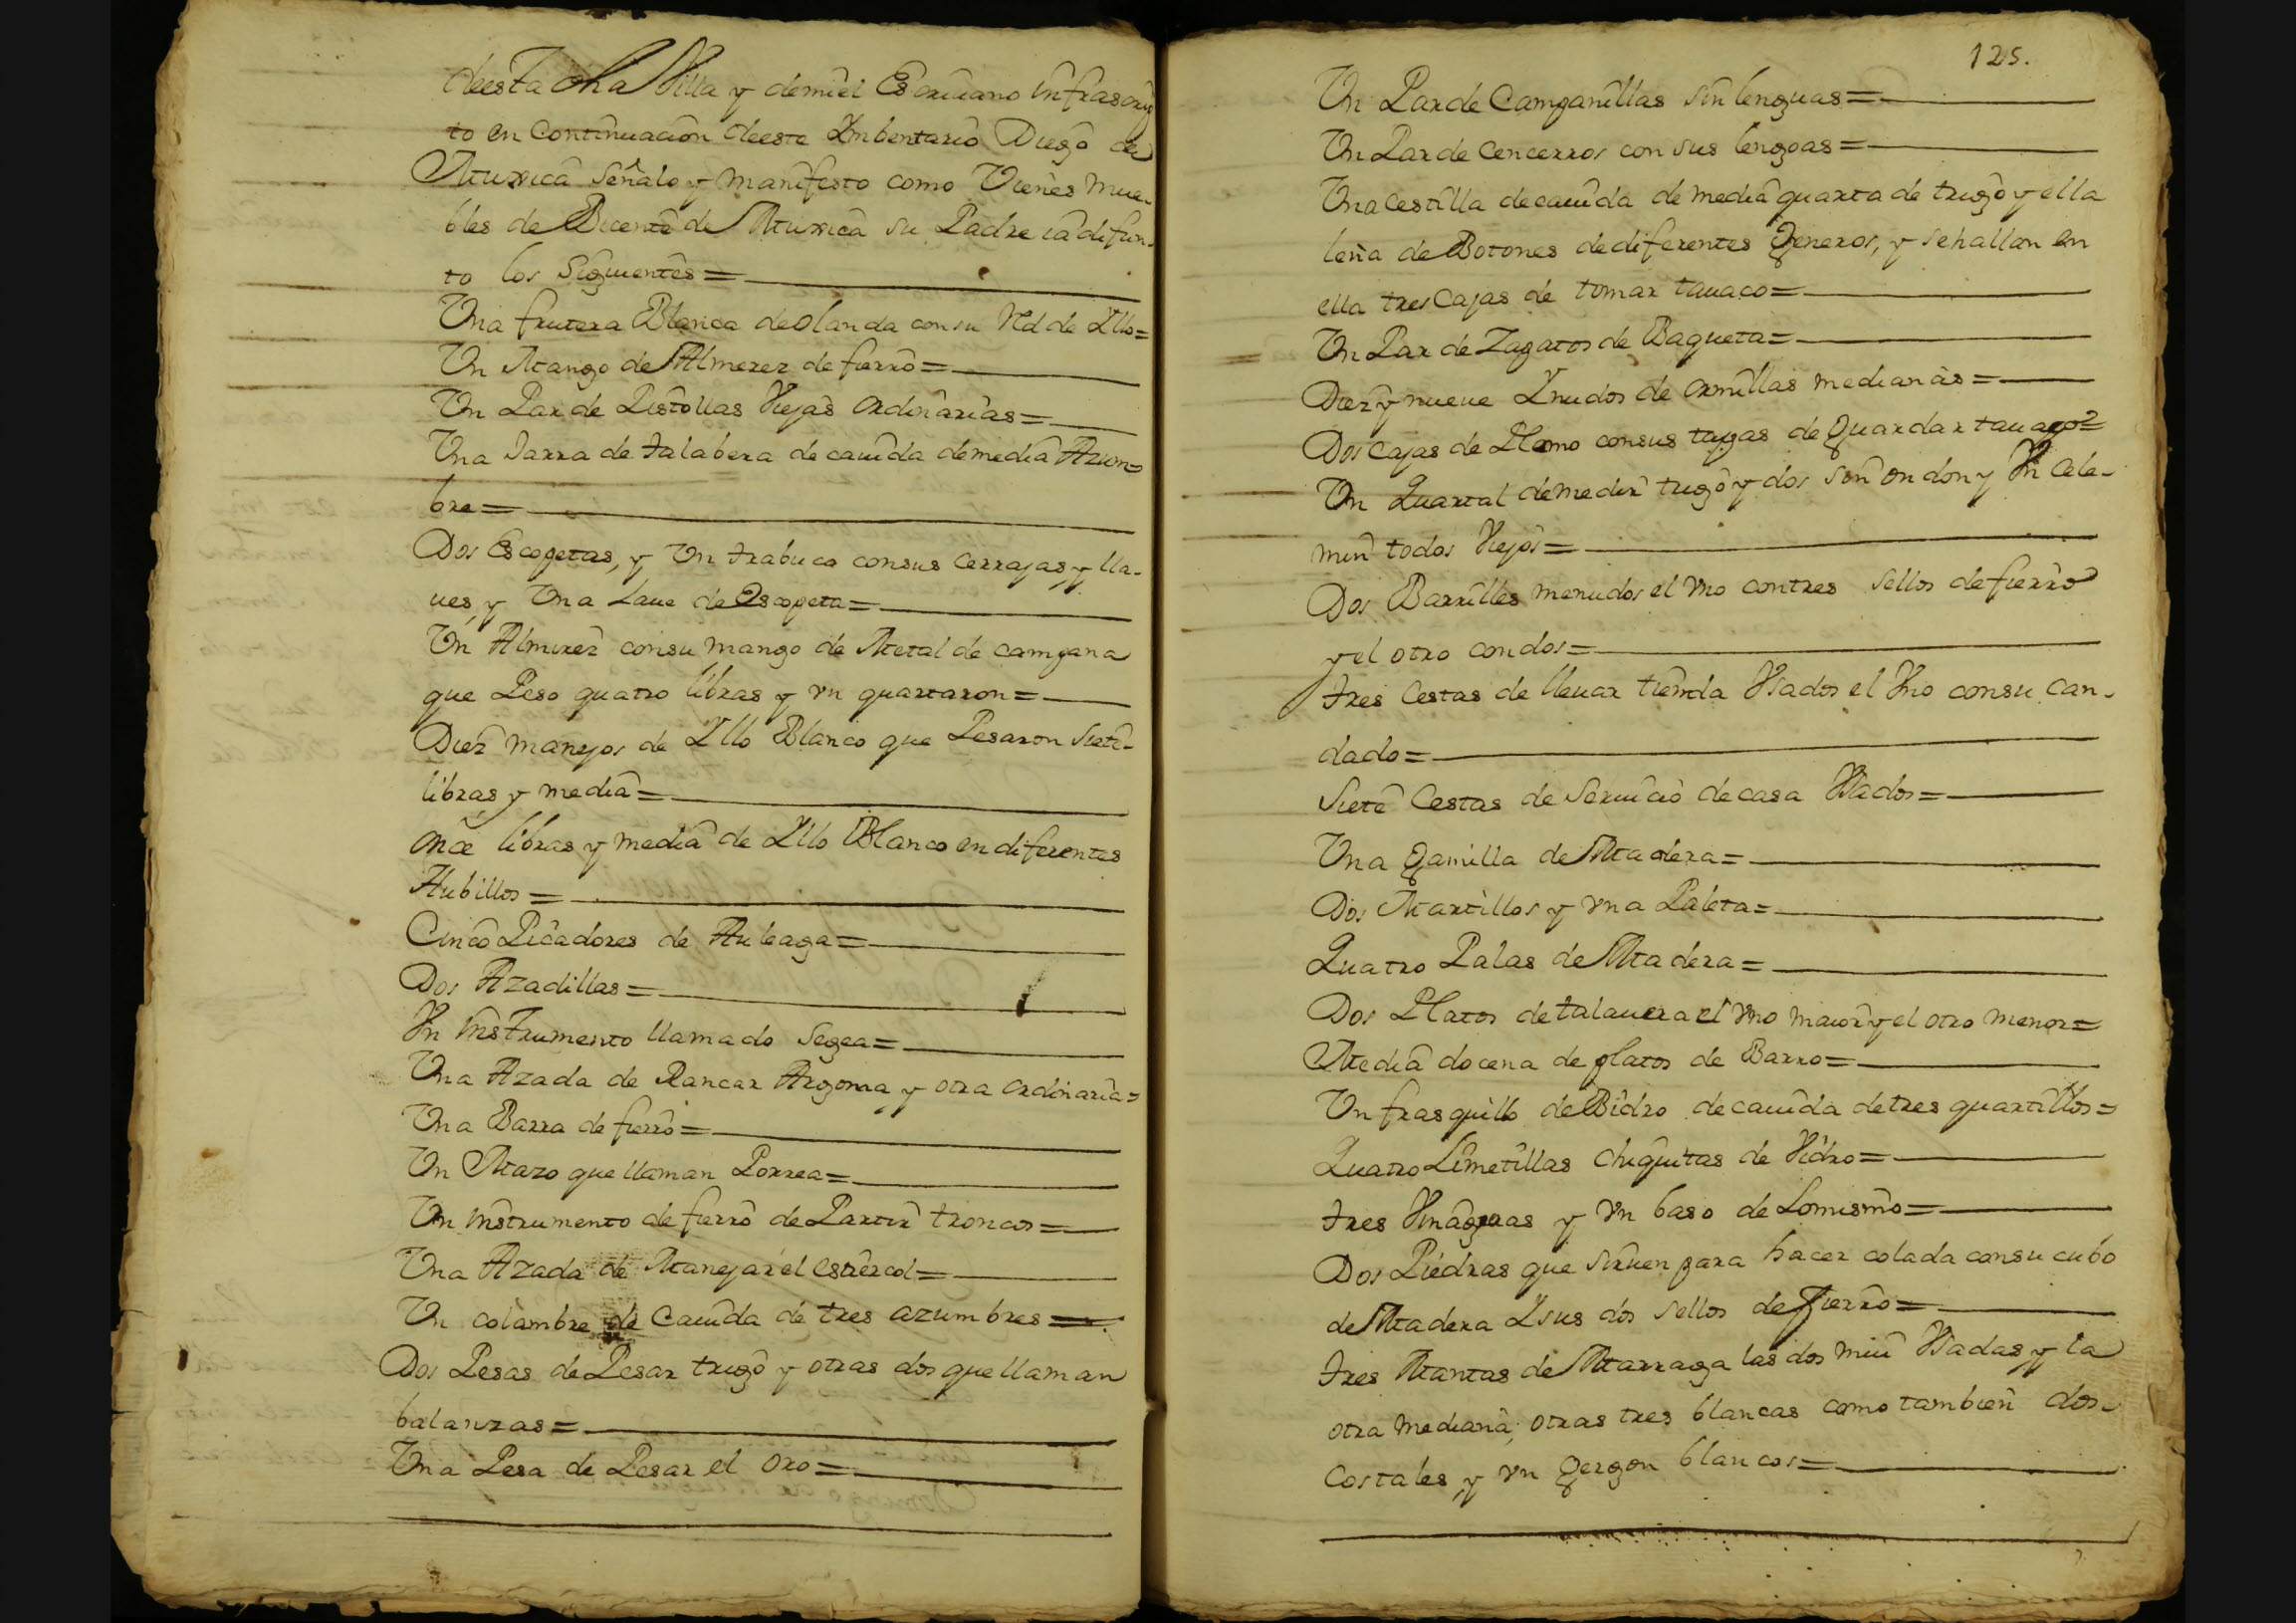 deesta dha Villa y demi el Escriuano infrascrip
to en Continuacion deeste Imbentario Diego de
Mturrica señalo y manifesto como Vienes mue-
bles de Bicente de Mturrica su Padre ia difun-
to los Siguientes=
Una frutera Blanca de olanda con su Red de Yllo=
Un Mango de Almerez de fierro=
Un Par de Pistollas Viejas ordinarias=
Una Jarra de talabera de cauida de media Azum=
bre=
Dos Escopetas, y Un trabuco consus cerrajas, y lla-
ues, y Una Laue de Escopeta=
Un Almirez consu mango de Metal de campana
que Peso quatro libras y vn quartaron=
Diez manojos de Yllo Blanco que Pesaron siete
libras y media=
Once libras y media de Yllo Blanco en diferentes
Hubillos=
Cinco Picadores de Auleaga=
Dos Azadillas=
Vn instrumento llamado Segea=
Una Azada de Rancar Argoma y otra ordinaria=
Una Barra de fierro=
Un Mazo que llaman Porrea=
Un instrumento de fierro de Partir troncos=
Una Azada de Manejar el estiercol=
Un colambre de Cauida de tres azumbres=
Dos Pesas de Pesar trigo y otras dos que llaman
balanzas=
Una Pesa de Pesar el oro=
125.
Un Par de Campanillas sin lenguas=
Un Par de Cencerros con sus lengoas=
Una cestilla decauida de media quarta de trigo y ella
lena de Botones dediferentes Generos, y sehallan en
ella tres Cajas de tomar tauaco=
Un Par de Zapatos de Baqueta=
Diez y nueue Ynudos de ormillas medianas=
Dos cajas de Plomo consus tapas de Guardar tauaco=
Un Quartal demedir trigo y dos sin ondon y Vn Cele-
min todos Viejos=
Dos Barrilles menudos el Vno contres sellos defierro
y el otro condos=
tres Cestas de lleuar tienda Vsados el Vno consu Can-
dado=
Siete Cestas de Seruicio decasa Vsados=
Una Gamilla de Madera=
Dos Martillos y vna Paleta=
Quatro Palas de Madera=
Dos Platos detalauera el Vno maior y el otro menor=
Media docena de platos de Barro=
Un frasquillo de Bidro decauida detres quartillos=
Quatro Limetillas chiquitas de Vidro=
tres Vinageras y Vn baso de Lomismo=
Dos Piedras que siruen para hacer colada consu cubo
de Madera Ysus dos sellos de fierro=
tres Mantas de Marraga las dos mui Vsadas y la
otra mediana; otras tres blancas como tambien dos
Costales, y vn Gergon blancos=